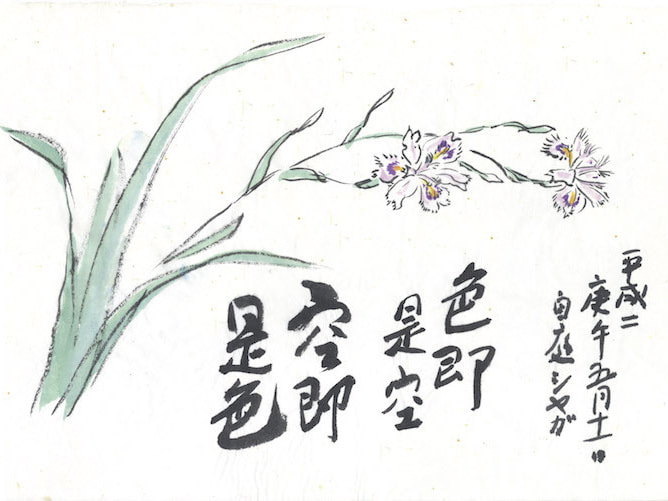 平成二
庚午五月十一日
自庭シャガ
色即
是空
空即
是色